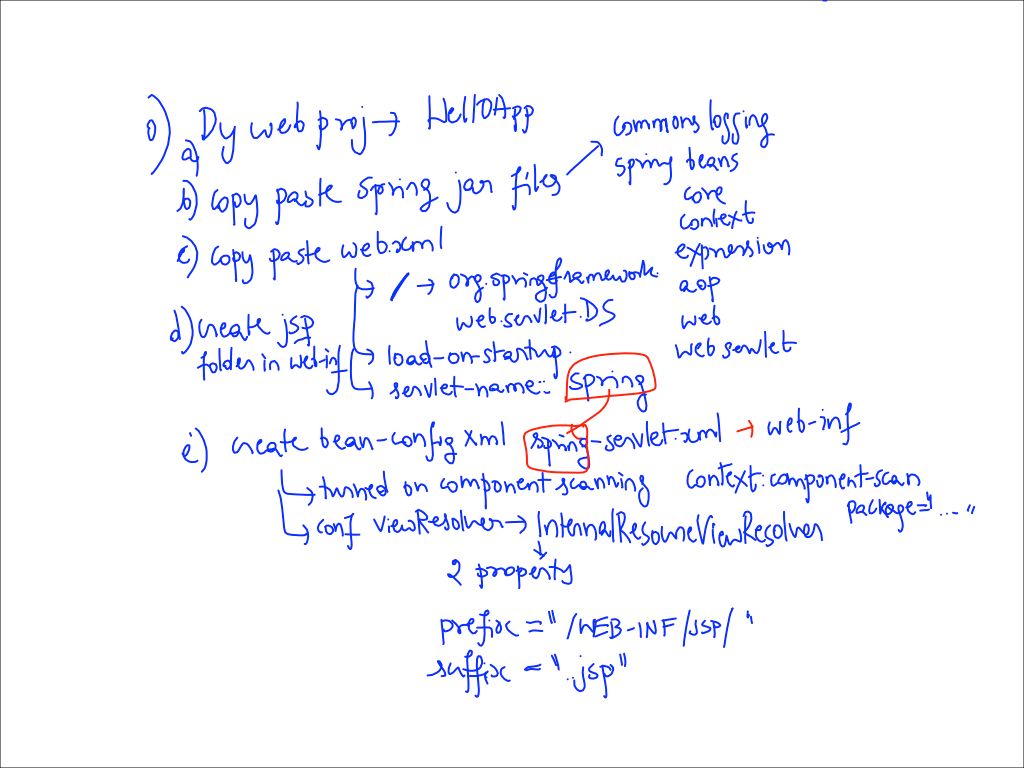 0) Dy web proj → HelloApp
a)
b) copy paste spring jar files →
commons logging
spring beans
core
context
expression
aop
web
web servlet
c) copy paste web.xml
→ / → org.springframework.
web.servlet.DS
→ load-on-startup.
→ servlet-name:- spring
d) create jsp
folder in web-inf
e) create bean-config xml spring-servlet.xml → web-inf
→ turned on component scanning context:component-scan
package="...."
→ conf viewResolver → InternalResourceViewResolver
↓
2 property
prefix = "/WEB-INF/JSP/"
suffix = ".jsp"